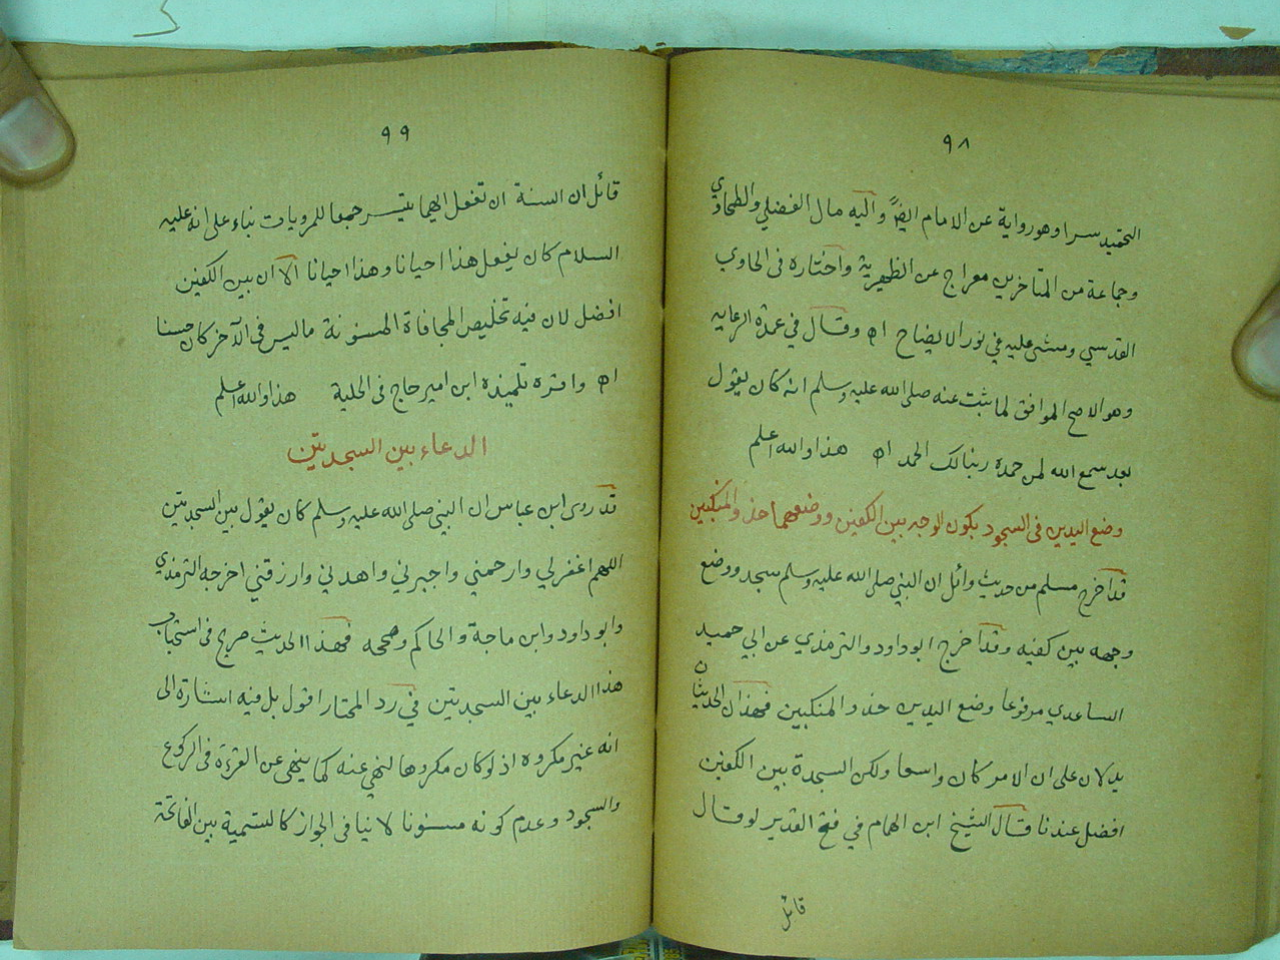 ٩٨
التحميد سرا وهو رواية عن الامام ايضاً واليه مال الفضلي والطحاوي
وجماعة من المتاخرين معراج عن الظهرية واختاره في الحاوي
القدسي ومشى عليه في نور الايضاح اه وقال في عمدة الرعاية
وهو الاصح الموافق لما ثبت عنه صلى الله عليه وسلم انه كان يقول
بعد سمع الله لمن حمده ربنا لك الحمد اه هذا والله اعلم
وضع اليدين في السجود بكون الوجه بين الكفين ووضعهما حذو المنكبين
قد اخرج مسلم من حديث وائل ان النبي صلى الله عليه وسلم سجد ووضع
وجهه بين كفيه وقد اخرج ابو داود والترمذي عن ابي حميد
الساعدي مرفوعا وضع اليدين حذو المنكبين فهذان الحديثان
يدلان على ان الامر كان واسعا ولكن السجدة بين الكفين
افضل عندنا قال الشيخ ابن الهمام في فتح القدير لو قال
قائل
٩٩
قائل ان السنة ان تفعل ايهما يتيسر جمعا للمرويات بناء على انه عليه
السلام كان يفعل هذا احيانا وهذا احيانا الا ان بين الكفين
افضل لان فيه تخليص المجافاة المسنونة ما ليس في الآخر كان حسنا
اه واقره تلميذه ابن امير حاج في الحلية هذا والله اعلم
الدعاء بين السجدتين
قد روى ابن عباس ان النبي صلى الله عليه وسلم كان يقول بين السجدتين
اللهم اغفر لي وارحمني واجبرني واهدني وارزقني اخرجه الترمذي
وابو داود وابن ماجة والحاكم وصححه فهذا الحديث صريح في استحباب
هذا الدعاء بين السجدتين في رد المحتار اقول بل فيه اشارة الى
انه غير مكروه اذ لو كان مكروها لنهى عنه كما ينهى عن القرءة في الركوع
والسجود وعدم كونه مسنونا لا ينافي الجواز كالتسمية بين الفاتحة